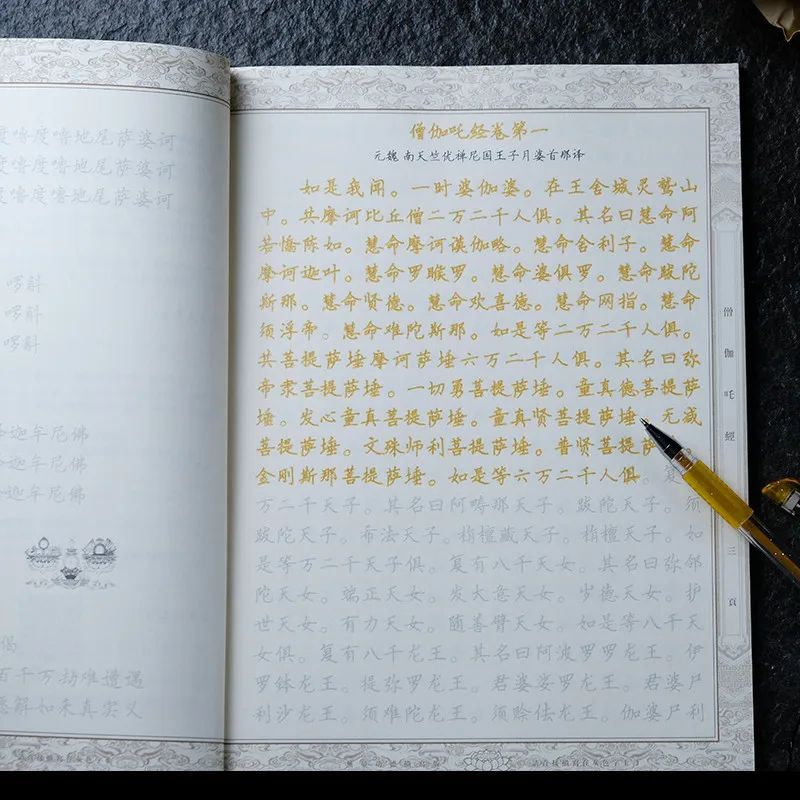 度噜度噜地尾萨婆诃
度噜度噜地尾萨婆诃
度噜度噜地尾萨婆诃
啰斛
啰斛
啰斛
迦牟尼佛
迦牟尼佛
迦牟尼佛
偈
百千万劫难遭遇
愿解如来真实义
僧伽吒经卷第一
元魏 南天竺优禅尼国王子月婆首那译
如是我闻。一时婆伽婆。在王舍城灵鹫山
中。共摩诃比丘僧二万二千人俱。其名曰慧命阿
若憍陈如。慧命摩诃谟伽略。慧命舍利子。慧命
摩诃迦叶。慧命罗睺罗。慧命婆俱罗。慧命跋陀
斯那。慧命贤德。慧命欢喜德。慧命网指。慧命
须浮帝。慧命难陀斯那。如是等二万二千人俱。
共菩提萨埵摩诃萨埵六万二千人俱。其名曰弥
帝隶菩提萨埵。一切勇菩提萨埵。童真德菩提萨
埵。发心童真菩提萨埵。童真贤菩提萨埵。无减
菩提萨埵。文殊师利菩提萨埵。普贤菩提萨
金刚斯那菩提萨埵。如是等六万二千人俱。复
万二千天子。其名曰阿畴那天子。跋陀天子。须
跋陀天子。希法天子。栴檀藏天子。栴檀天子。如
是等万二千天子俱。复有八千天女。其名曰弥邻
陀天女。端正天女。发大意天女。岁德天女。护
世天女。有力天女。随善臂天女。如是等八千天
女俱。复有八千龙王。其名曰阿波罗罗龙王。伊
罗钵龙王。提弥罗龙王。君婆娑罗龙王。君婆尸
利沙龙王。须难陀龙王。须赊佉龙王。伽婆尸利
僧伽吒經
三頁